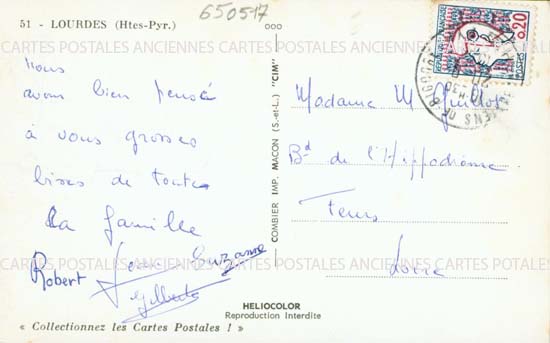 650517
51 - LOURDES (Htes-Pyr.)
CARTES POSTALES ANCIENNES CARTES POSTALES ANCIENNES CARTES POSTALES
Nous
avons bien pensé
à vous grosses
bises de toute
la famille
Robert Suzanne
Gilberte
COMBIER IMP. MACON (S.-et-L.) "CIM"
0,20
Madame M Guillot
Bd de l'Hippodrome
Feurs
Loire
CARTES POSTALES ANCIENNES CARTES POSTALES ANCIENNES CARTES POSTALES
HELIOCOLOR
Reproduction Interdite
« Collectionnez les Cartes Postales ! »